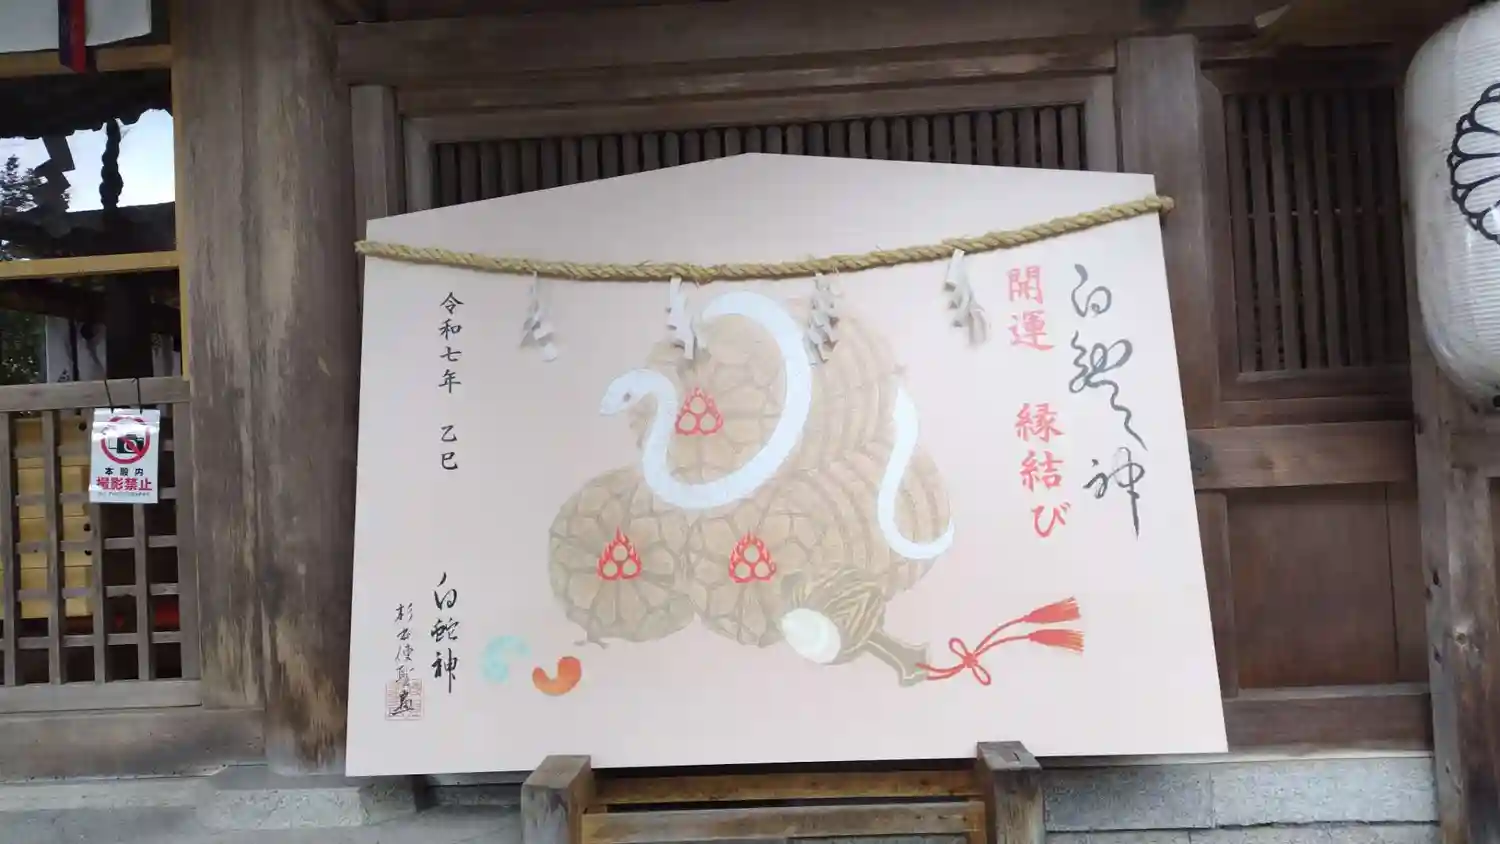 白蛇神
開運 縁結び
令和七年 乙巳
白蛇神
本殿内
撮影禁止